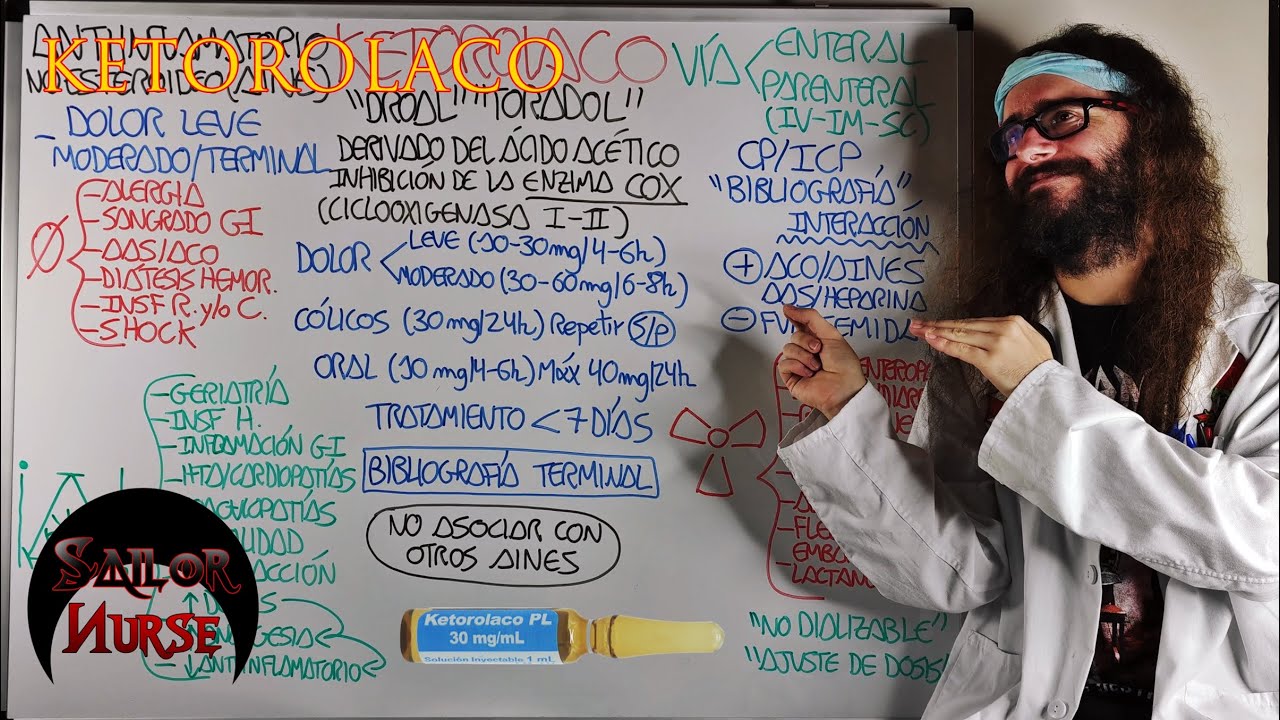 KETOROLACO
ANTIINFLAMATORIO
NO ESTEROIDEO (AINE)
- DOLOR LEVE
MODERADO/TERMINAL
Ø
- ALERGIA
- SANGRADO GI
- AAS/ACO
- DIÁTESIS HEMOR.
- INSF R. y/o C.
- SHOCK
- GERIATRÍA
- INSF H.
- INFLAMACIÓN GI
- HTA/CARDIOPATÍAS
SAILOR
NURSE
ANTIINFLAMATORIO
KETOROLACO
"DROAL" "TORADOL"
DERIVADO DEL ÁCIDO ACÉTICO
INHIBICIÓN DE LA ENZIMA COX
(CICLOOXIGENASA I-II)
DOLOR
LEVE (10-30mg/4-6h)
MODERADO (30-60mg/6-8h)
CÓLICOS (30mg/24h) Repetir S/P
ORAL (10mg/4-6h) Máx 40mg/24h
TRATAMIENTO < 7 DÍAS
BIBLIOGRAFÍA TERMINAL
NO ASOCIAR CON
OTROS AINES
Ketorolaco PL
30 mg/mL
Solución Inyectable 1 mL
VÍA
ENTERAL
PARENTERAL
(IV-IM-SC)
CP/ICP
"BIBLIOGRAFÍA"
INTERACCIÓN
+ ACO/AINES
AAS/HEPARINA
"NO DIALIZABLE"
"AJUSTE DE DOSIS"